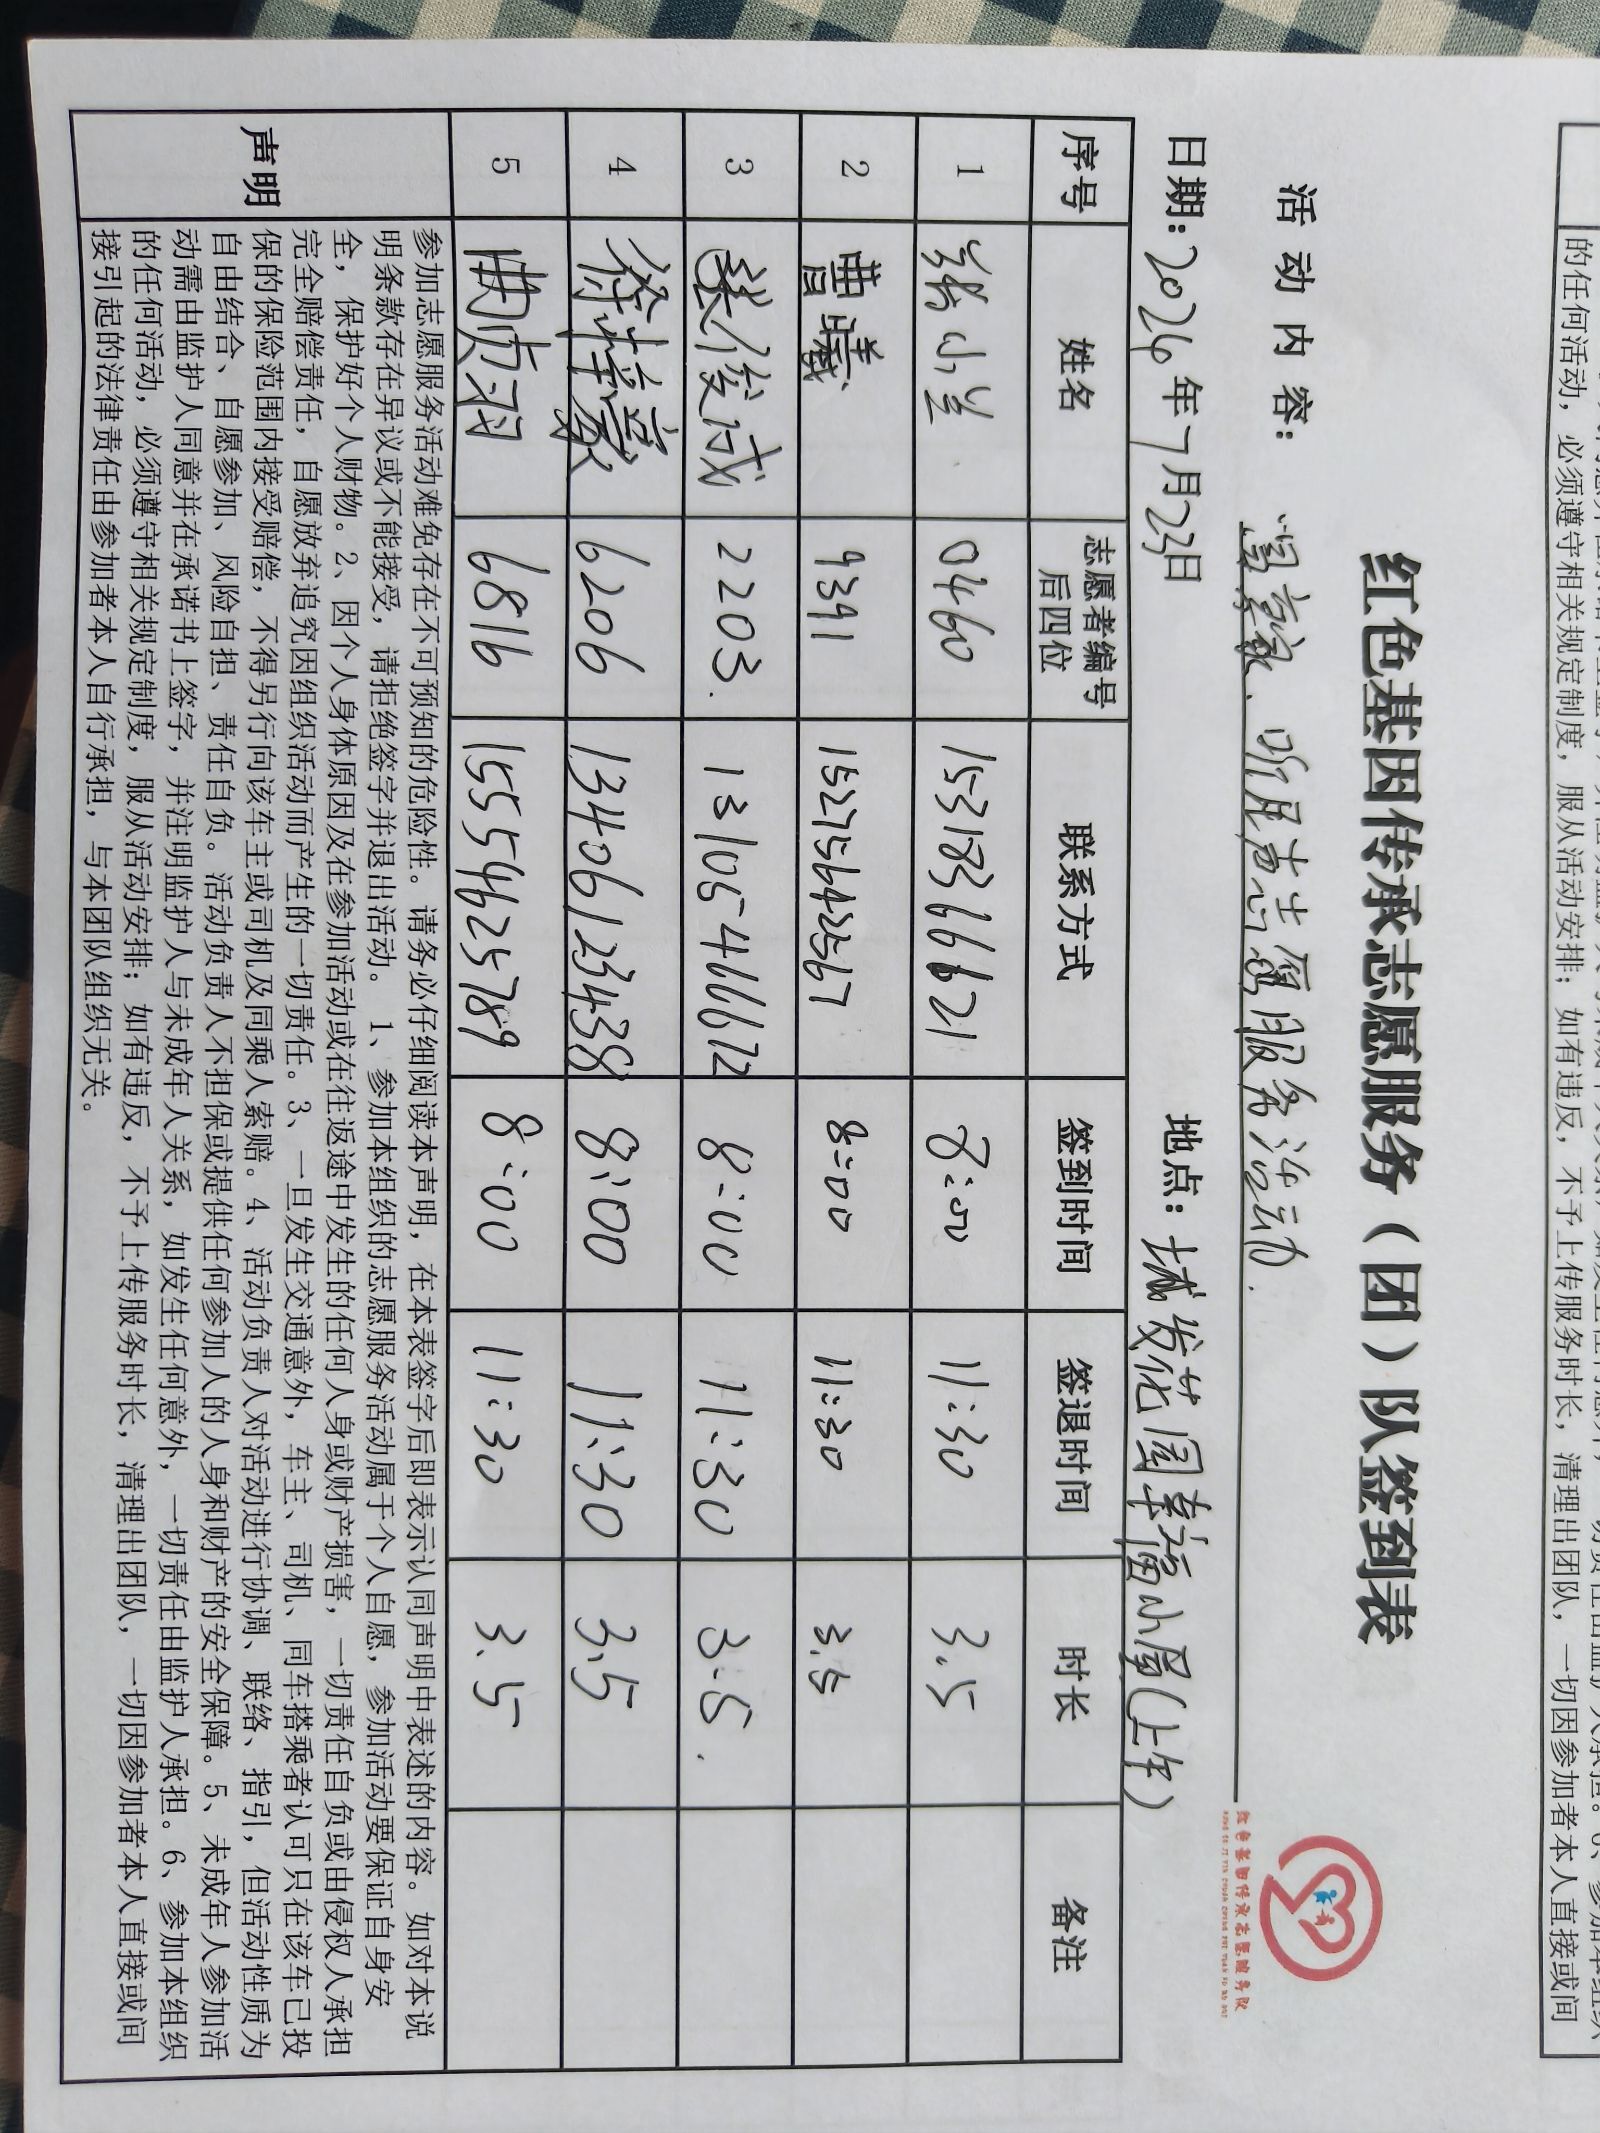 红色基因传承志愿服务（团）队签到表
活动内容：
志愿服务活动.
日期：2024年7月23日 地点：城发花园幸福小屋(上午)
序号 姓名 志愿者编号后四位 联系方式 签到时间 签退时间 时长 备注
1 张小兰 0460 15318366621 8:00 11:30 3.5
2 曹曦 9391 15275642567 8:00 11:30 3.5
3 张俊成 2203. 13105466672 8:00 11:30 3.5.
4 徐梓豪 6206 13406123438 8:00 11:30 3.5
5 曲贞羽 6816 15554625789 8:00 11:30 3.5
声明
参加志愿服务活动难免存在不可预知的危险性。请务必仔细阅读本声明，在本表签字后即表示认同声明中表述的内容。如对本说
明条款存在异议或不能接受，请拒绝签字并退出活动。1、参加本组织的志愿服务活动属于个人自愿，参加活动要保证自身安
全，保护好个人财物。2、因个人身体原因及在参加活动或在往返途中发生的任何人身或财产损害，一切责任自负或由侵权人承担
完全赔偿责任，自愿放弃追究因组织活动而产生的一切责任。3、一旦发生交通意外，车主、司机、同车搭乘者认可只在该车已投
保的保险范围内接受赔偿，不得另行向该车主或司机及同乘人索赔。4、活动负责人对活动进行协调、联络、指引，但活动性质为
自由结合、自愿参加、风险自担、责任自负。活动负责人不担保或提供任何参加人的人身和财产的安全保障。5、未成年人参加活
动需由监护人同意并在承诺书上签字，并注明监护人与未成年人关系，如发生任何意外，一切责任由监护人承担。6、参加本组织
的任何活动，必须遵守相关规定制度，服从活动安排；如有违反，不予上传服务时长，清理出团队，一切因参加者本人直接或间
接引起的法律责任由参加者本人自行承担，与本团队组织无关。
红色基因传承志愿服务队
的任何活动，必须遵守相关规定制度，服从活动安排；如有违反，不予上传服务时长，清理出团队，一切因参加者本人直接或间